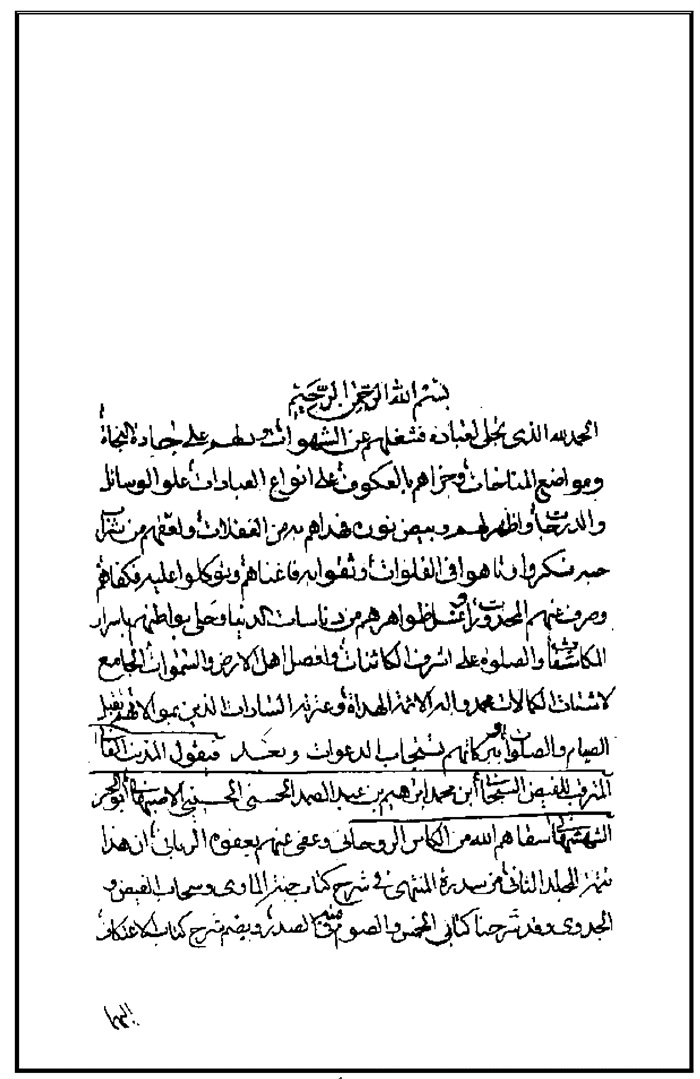 بسم الله الرحمن الرحيم
الحمد لله الذي تجلى لعباده فشغلهم عن الشهوات على جادة النجاة
ومواضع المناخات وجزاهم بالعكوف على انواع العبادات علو الوسائل
والدرجات واظهر لهم فهداهم به من الغفلات
فى الفلوات وثقوا به فاغناهم وتوكلوا عليه فكفاهم
وصرف عنهم المحذورات وغسل ظواهرهم من دناسات الدنيا وحلى بواطنهم باسرار
المكاشفات والصلوة على اشرف الكائنات وافضل اهل الارض والسموات الجامع
لاشتات الكمالات محمد واله الائمة الهداة وعترته السادات الذين بموالاتهم تقبل
الصيام والصلوات وببركاتهم تستجاب الدعوات وبعد فيقول المذنب
المترقب للفيض ابن محمد ابراهيم بن عبد الصمد الحسنى الحسينى الاصبهانى
اسقاهم الله من الكاس الروحانى وعفى عنهم بعفوه الربانى ان هذا
المجلد الثانى من سدرة المنتهى فى شرح كتاب جنة الماوى وسحاب الفيض و
الجدوى وقد شرحنا كتابى الخمس والصوم الصدر ويضم شرح كتاب الاعتكاف